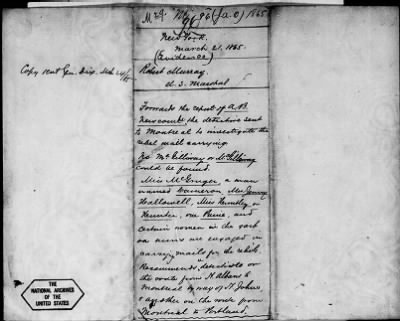 1865
New York.
March 21, 1865.
(Evidence)
Robert Murray,
U. S. Marshal
Copy sent Gen. Dix.
Forwards the report of A. B.
Newcomb, the detective sent
to Montreal to investigate the
rebel mail carrying.
No McElliway or McGilliway
could be found.
Miss McGregor, a man
named Cameron, Mrs. Jenny
Hallowell, Miss
one and
certain women in the
are engaged in
carrying mails for the rebels.
Recommends detectives on
the route from St. Albans to
Montreal by way of St. Johns
& another on the route from
Montreal to Portland.
THE
NATIONAL ARCHIVES
OF THE
UNITED STATES